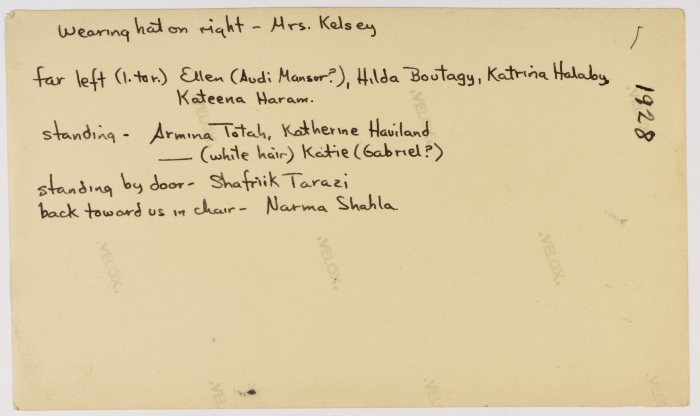 Wearing hat on right - Mrs. Kelsey
far left (l. to r.) Ellen (Audi Mansor?), Hilda Boutagy, Katrina Halaby,
Kateena Haram.
standing - Armina Totah, Katherine Haviland
___ (white hair) Katie (Gabriel?)
standing by door - Shafriik Tarazi
back toward us in chair - Narma Shahla
1928
VELOX
VELOX
VELOX
VELOX
VELOX
VELOX
VELOX
VELOX